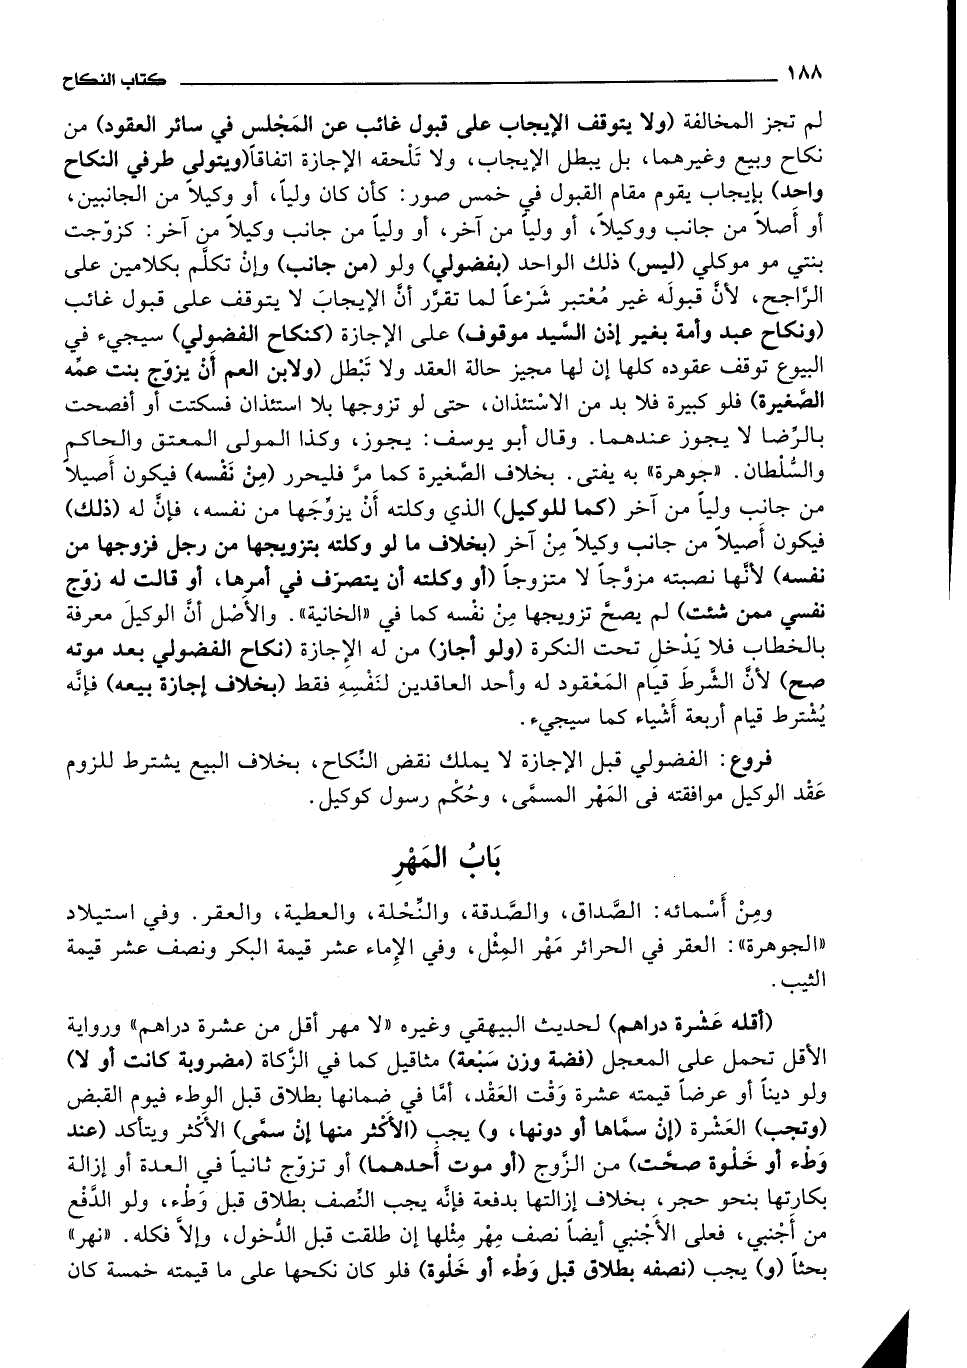 ١٨٨ كتاب النكاح
لم تجز المخالفة (ولا يتوقف الإيجاب على قبول غائب عن المَجْلس في سائر العقود) من
نكاح وبيع وغيرهما، بل يبطل الإيجاب، ولا تَلْحقه الإجازة اتفاقاً(ويتولى طرفي النكاح
واحد) بإيجاب يقوم مقام القبول في خمس صور: كأن كان ولياً، أو وكيلاً من الجانبين،
أو أَصلاً من جانب ووكيلاً، أو ولياً من آخر، أو ولياً من جانب وكيلاً من آخر: كزوّجت
بنتي مو موكلي (ليس) ذلك الواحد (بفضولي) ولو (من جانب) وإنْ تكلَّم بكلامين على
الرَّاجح، لأنَّ قبولَه غير مُعْتبر شَرْعاً لما تقرَّر أنَّ الإيجابَ لا يتوقف على قبول غائب
(ونكاح عبد وأمة بغير إذن السَّيد موقوف) على الإجازة (كنكاح الفضولي) سيجيء في
البيوع توقف عقوده كلها إن لها مجيز حالة العقد ولا تَبْطل (ولابن العم أَنْ يزوّج بنت عمِّه
الصَّغيرة) فلو كبيرة فلا بد من الاسْتئذان، حتى لو تزوجها بلا استئذان فسكتت أو أفصحت
بالرِّضا لا يجوز عندهما. وقال أبو يوسف: يجوز، وكذا المولى المعتق والحاكم
والسُّلطان. «جوهرة» به يفتى. بخلاف الصَّغيرة كما مرَّ فليحرر (مِنْ نَفْسه) فيكون أَصيلاً
من جانب ولياً من آخر (كما للوكيل) الذي وكلته أَنْ يزوِّجَها من نفسه، فإنَّ له (ذلك)
فيكون أَصيلاً من جانب وكيلاً مِنْ آخر (بخلاف ما لو وكلته بتزويجها من رجل فزوجها من
نفسه) لأنَّها نصبته مزوَّجاً لا متزوجاً (أو وكلته أن يتصرّف في أمرها، أو قالت له زوّج
نفسي ممن شئت) لم يصحَّ تزويجها مِنْ نفْسه كما في «الخانية». والأصْل أنَّ الوكيلَ معرفة
بالخطاب فلا يَدْخل تحت النكرة (ولو أجاز) من له الإجازة (نكاح الفضولي بعد موته
صح) لأنَّ الشَّرطَ قيام المَعْقود له وأحد العاقدين لنَفْسِهِ فقط (بخلاف إجازة بيعه) فإنَّه
يُشْترط قيام أربعة أَشْياء كما سيجيء.
فروع: الفضولي قبل الإجازة لا يملك نقض النِّكاح، بخلاف البيع يشترط للزوم
عَقْد الوكيل موافقته في المَهْر المسمَّى، وحُكْم رسول كوكيل.
بَابُ المَهْرِ
ومِنْ أَسْمائه: الصَّداق، والصَّدقة، والنِّحْلة، والعطية، والعقر. وفي استيلاد
«الجوهرة»: العقر في الحرائر مَهْر المِثْل، وفي الإماء عشر قيمة البكر ونصف عشر قيمة
الثيب.
(أقله عَشْرة دراهم) لحديث البيهقي وغيره «لا مهر أقل من عشرة دراهم» ورواية
الأقل تحمل على المعجل (فضة وزن سَبْعة) مثاقيل كما في الزَّكاة (مضروبة كانت أو لا)
ولو ديناً أو عرضاً قيمته عشرة وَقْت العَقْد، أمَّا في ضمانها بطلاق قبل الوطء فيوم القبض
(وتجب) العَشْرة (إنْ سمَّاها أو دونها، و) يجب (الأَكْثر منها إنْ سمَّى) الأَكْثر ويتأكد (عند
وَطْء أو خَلْوة صحَّت) من الزَّوج (أو موت أحدهما) أو تزوّج ثانياً في العدة أو إزالة
بكارتها بنحو حجر، بخلاف إزالتها بدفعة فإنَّه يجب النِّصف بطلاق قبل وَطْء، ولو الدَّفْع
من أَجْنبي، فعلى الأَجْنبي أيضاً نصف مِهْر مِثْلها إن طلقت قبل الدُّخول، وإلاَّ فكله. «نهر»
بحثاً (و) يجب (نصفه بطلاق قبل وَطْء أو خَلْوة) فلو كان نكحها على ما قيمته خمسة كان